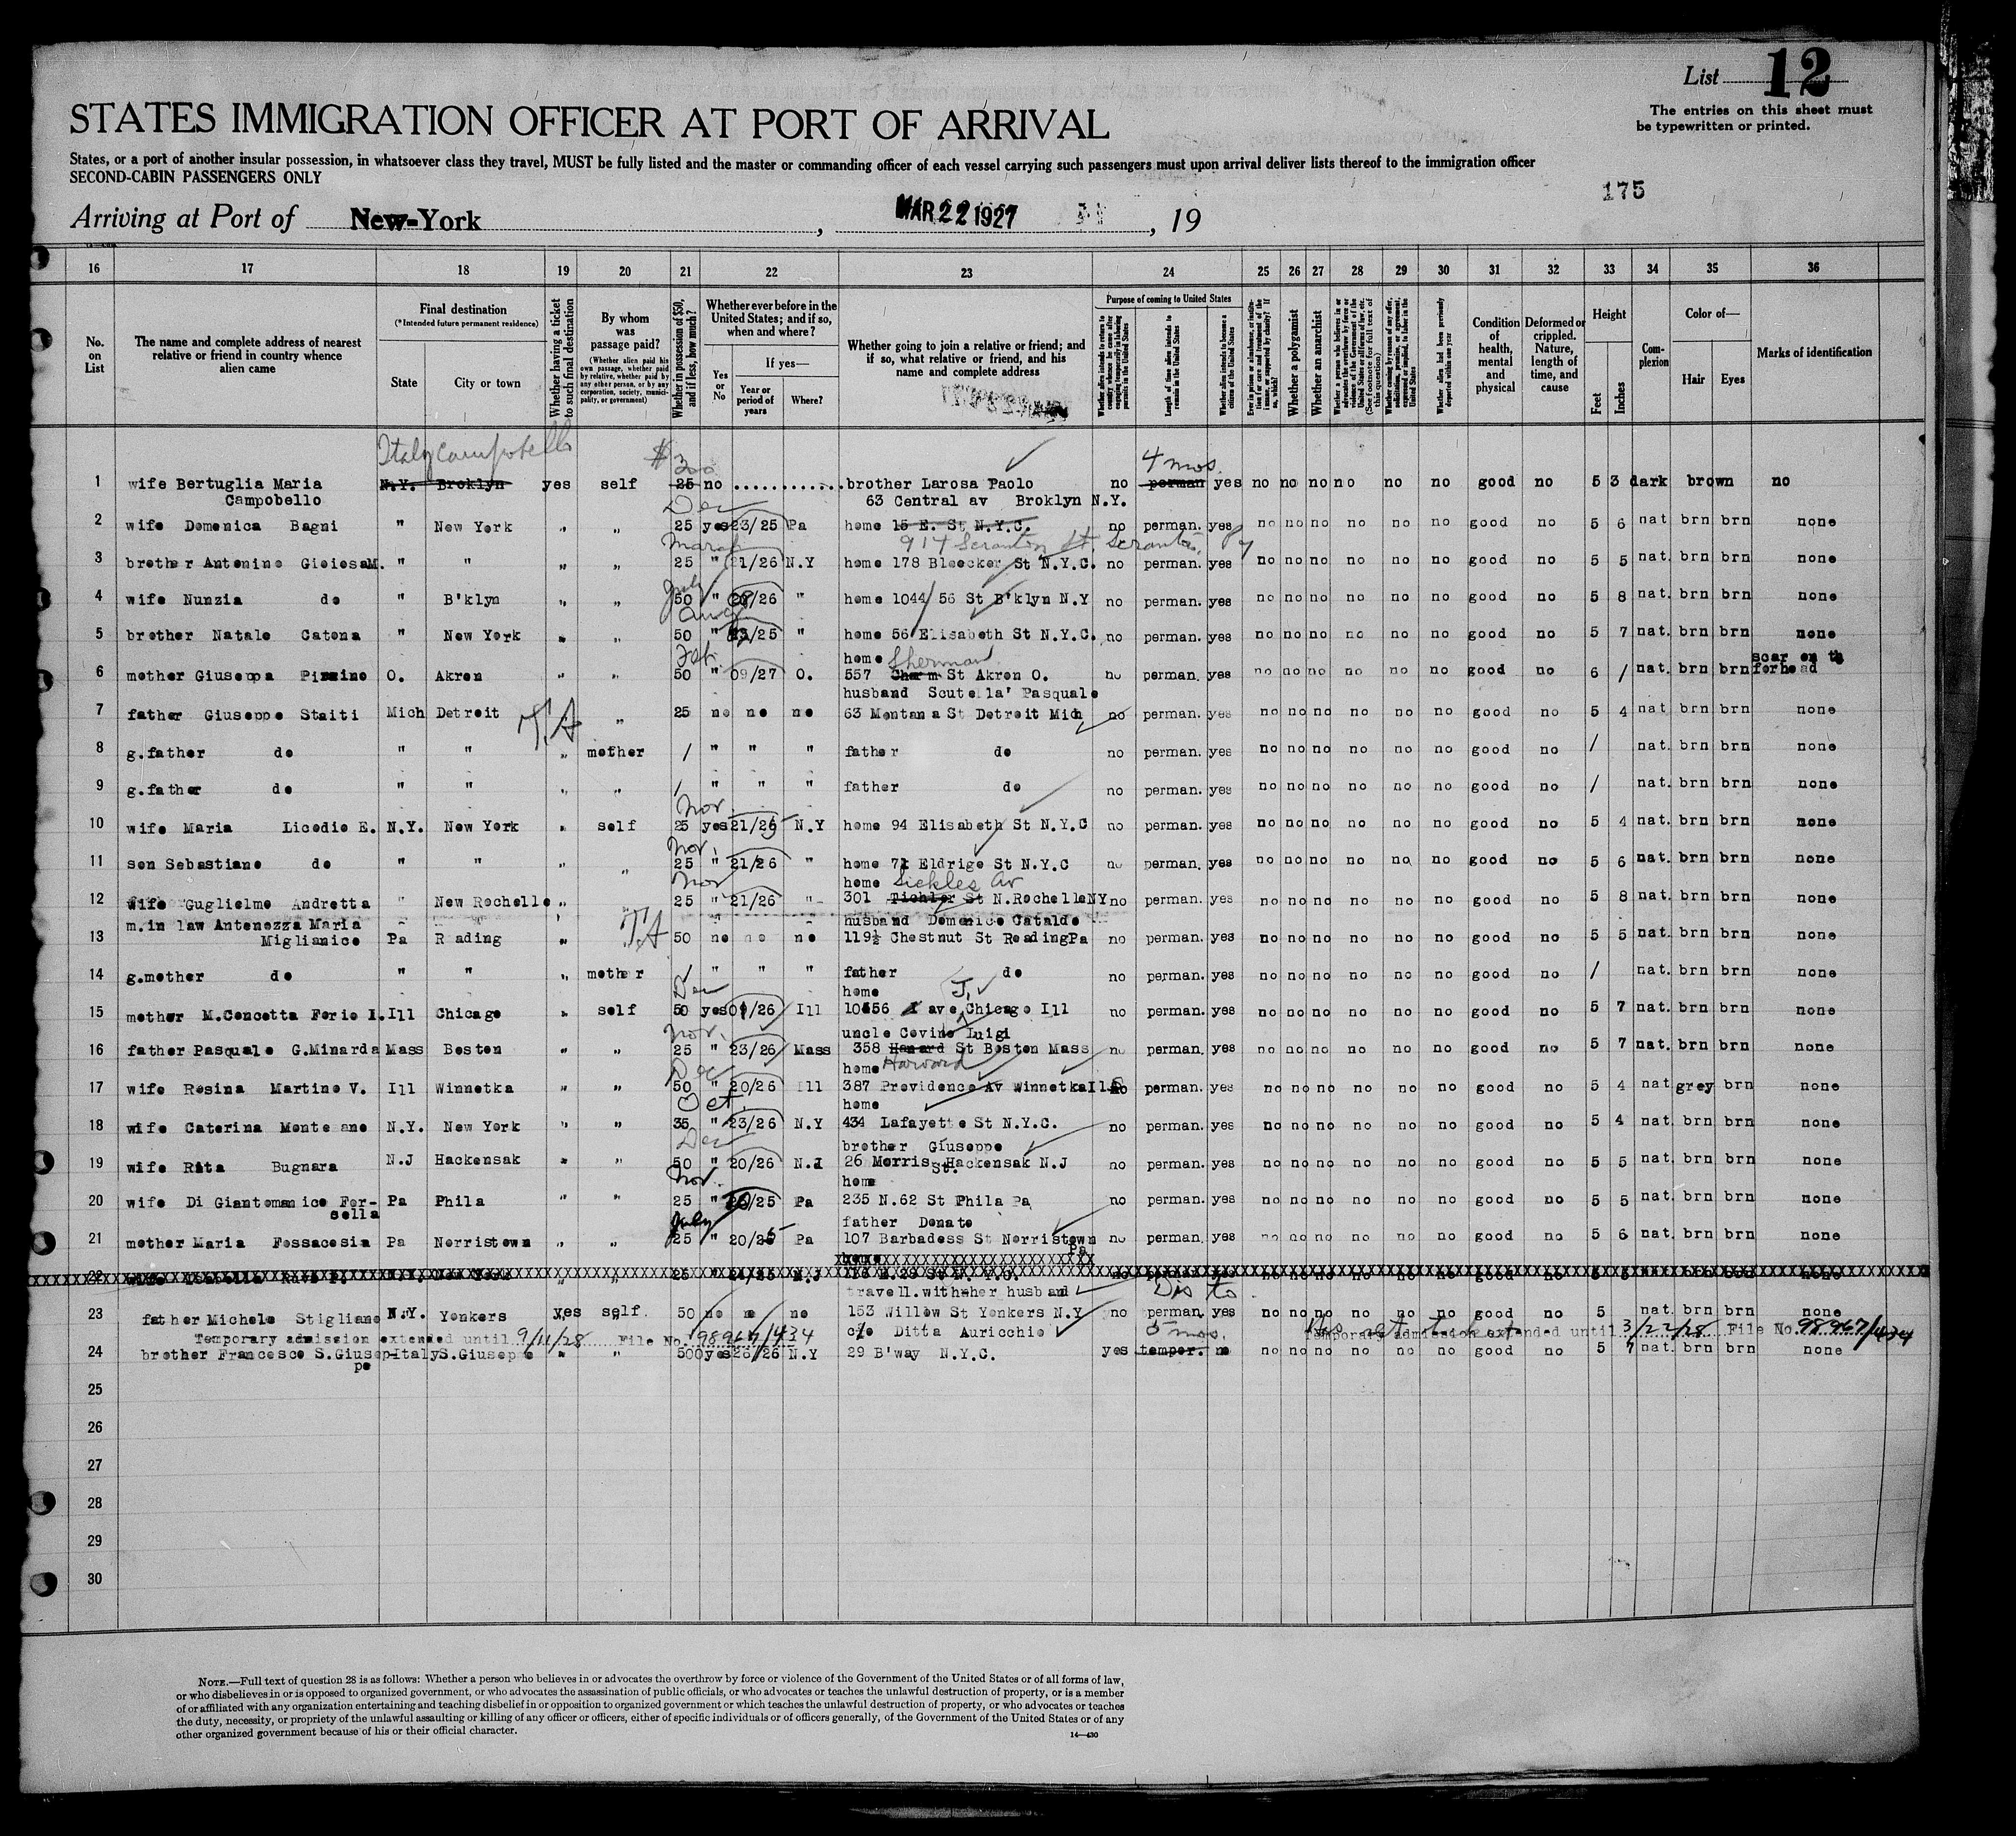 List 12
The entries on this sheet must
be typewritten or printed.
STATES IMMIGRATION OFFICER AT PORT OF ARRIVAL
States, or a port of another insular possession, in whatsoever class they travel, MUST be fully listed and the master or commanding officer of each vessel carrying such passengers must upon arrival deliver lists thereof to the immigration officer
SECOND-CABIN PASSENGERS ONLY
175
Arriving at Port of New-York, MAR 22 1927, 19
16 17 18 19 20 21 22 23 24 25 26 27 28 29 30 31 32 33 34 35 36
No. on List
The name and complete address of nearest relative or friend in country whence alien came
Final destination
(*Intended future permanent residence)
State
City or town
Whether having a ticket to such final destination
By whom was passage paid?
(Whether alien paid his own passage, whether paid by relative, whether paid by any other person, or by any corporation, society, municipality, or government)
Whether in possession of $50, and if less, how much?
Whether ever before in the United States; and if so, when and where?
Yes or No
If yes—
Year or period of years
Where?
Whether going to join a relative or friend; and if so, what relative or friend, and his name and complete address
Purpose of coming to United States
Length of time alien intends to remain in the United States
Whether alien intends to become a citizen of the United States
Whether a polygamist
Whether an anarchist
Condition of health, mental and physical
Deformed or crippled. Nature, length of time, and cause
Height
Feet
Inches
Complexion
Color of—
Hair
Eyes
Marks of identification
Italy Campobello $ 300 4 mos.
1 wife Bertuglia Maria N.Y. Broklyn yes self 25 no ............ brother Larosa Paolo no perman yes no no no no no no good no 5 3 dark brown no
Campobello 63 Central av Broklyn N.Y.
Dec
2 wife Domenica Bagni " New York " " 25 yes 23/25 Pa home 15 E. St N.Y.C. no perman. yes no no no no no no good no 5 6 nat brn brn none
March 914 Scranton St. Scranton, Pa
3 brother Antonino Gioiosa M. " " " " 25 " 21/26 N.Y home 178 Bleecker St N.Y.C. no perman. yes no no no no no no good no 5 5 nat. brn brn none
July
4 wife Nunzia do " B'klyn " " 50 " /26 " home 1044/56 St B'klyn N.Y no perman. yes no no no no no no good no 5 8 nat. brn brn none
Aug
5 brother Natale Catona " New York " " 50 " 23/25 " home 56 Elisabeth St N.Y.C. no perman. yes no no no no no no good no 5 7 nat. brn brn none
Feb. home Sherman scar on th
6 mother Giuseppa O. Akron " " 50 " 09/27 O. 557 St Akron O. no perman. yes no no no no no no good no 6 / nat. brn brn forhead
husband Scutella' Pasquale
7 father Giuseppe Staiti Mich Detroit T.A " " 25 no no no 63 Montana St Detroit Mich no perman. yes no no no no no no good no 5 4 nat brn brn none
8 g.father do " " " mother / " " " father do no perman. yes no no no no no no good no / nat. brn brn none
9 g.father do " " " " / " " " father do no perman. yes no no no no no no good no / nat. brn brn none
Nov.
10 wife Maria Licodio E. N.Y. New York " self 25 yes 21/25 N.Y home 94 Elisabeth St N.Y.C no perman. yes no no no no no no good no 5 4 nat. brn brn none
Nov.
11 son Sebastiano do " " " " 25 " 21/26 " home 71 Eldrige St N.Y.C no perman. yes no no no no no no good no 5 6 nat. brn brn none
Nov home Sickles Av
12 wife Guglielmo Andretta " New Rochelle " 25 " 21/26 " 301 Tichler St N.Rochelle NY no perman. yes no no no no no no good no 5 8 nat. brn brn none
m.in law Antonozza Maria T.A husband Domenico Cataldo
13 Miglianico Pa Reading " 50 no no no 119½ Chestnut St Reading Pa no perman. yes no no no no no no good no 5 5 nat. brn brn none
14 g.mother do " " " mother / " " " father do no perman. yes no no no no no no good no / nat. brn brn none
Dec home J.
15 mother M.Concetta Ferio I. Ill Chicago " self 50 yes 09/26 Ill 10656 ave Chicago Ill no perman. yes no no no no no no good no 5 7 nat. brn brn none
Nov. uncle Covino Luigi
16 father Pasquale G.Minarda Mass Boston " " 25 " 23/26 Mass 358 Hanard St Boston Mass no perman. yes no no no no no no good no 5 7 nat. brn brn none
Dec home Harvard
17 wife Rosina Martino V. Ill Winnetka " " 50 " 20/26 Ill 387 Providence Av Winnetka Ill no perman. yes no no no no no no good no 5 4 nat grey brn none
Oct. home
18 wife Caterina Montesano N.Y. New York " " 35 " 23/26 N.Y 434 Lafayette St N.Y.C. no perman. yes no no no no no no good no 5 4 nat. brn brn none
Dec brother Giuseppe
19 wife Rita Bugnara N.J Hackensak " " 50 " 20/26 N.J 26 Morris St. Hackensak N.J no perman. yes no no no no no no good no 5 5 nat. brn brn none
Nov. home
20 wife Di Giantomanico For- Pa Phila " " 25 " /25 Pa 235 N.62 St Phila Pa no perman. yes no no no no no no good no 5 5 nat. brn brn none
sella
July father Donato
21 mother Maria Fossacesia Pa Norristown " " 25 " 20/25 Pa 107 Barbadoss St Norristown no perman. yes no no no no no no good no 5 6 nat. brn brn none
Pa
home
22
travell. with her husband Dis to
23 father Michele Stigliano N.Y. Yonkers yes self 50 no no no 153 Willow St Yonkers N.Y no perman. yes no no no no no no good no 5 nat. brn brn none
Temporary admission extended until 9/11/28 File No. 98967/434 c/o Ditta Auricchio 5 mos. Temporary admission extended until 3/22/28 File No. 98967/434
24 brother Francesco S.Giusep- Italy S.Giuseppe " " 500 yes 26/26 N.Y 29 B'way N.Y.C. yes temper. no no no no no no no good no 5 7 nat. brn brn none
pe
25
26
27
28
29
30
NOTE.—Full text of question 28 is as follows: Whether a person who believes in or advocates the overthrow by force or violence of the Government of the United States or of all forms of law,
or who disbelieves in or is opposed to organized government, or who advocates the assassination of public officials, or who advocates or teaches the unlawful destruction of property, or is a member
of or affiliated with any organization entertaining and teaching disbelief in or opposition to organized government or which teaches the unlawful destruction of property, or who advocates or teaches
the duty, necessity, or propriety of the unlawful assaulting or killing of any officer or officers, either of specific individuals or of officers generally, of the Government of the United States or of any
other organized government because of his or their official character.
14—430